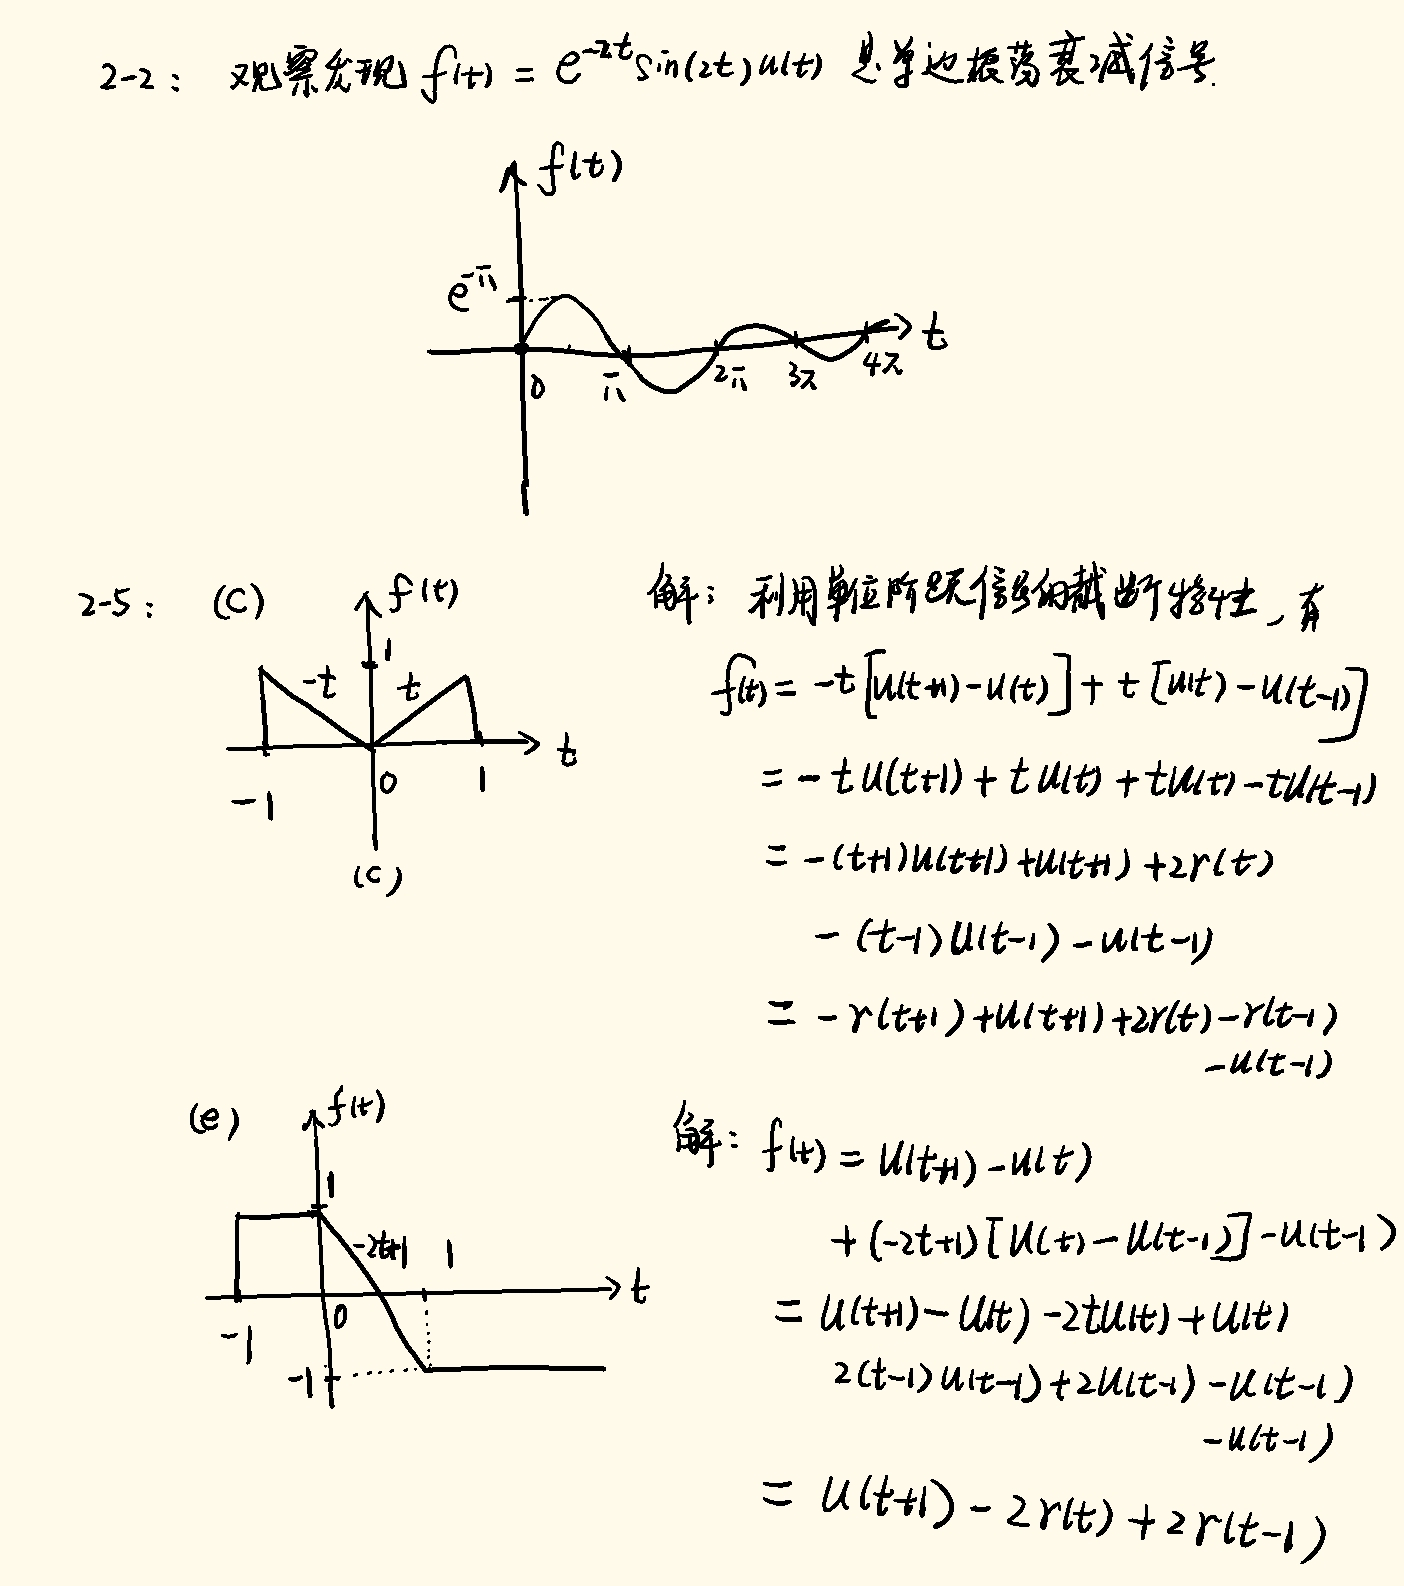 2-2: 观察发现 f(t) = e^{-2t}sin(2t)u(t) 是单边振荡衰减信号.
f(t)
e^{-π}
t
0 π 2π 3π 4π
2-5: (C) f(t)
1
-t t
t
-1 0 1
(C)
解: 利用单位阶跃信号的截断特性, 有
f(t) = -t[u(t+1)-u(t)] + t[u(t)-u(t-1)]
= -tu(t+1) + tu(t) + tu(t) - tu(t-1)
= -(t+1)u(t+1) + u(t+1) + 2r(t)
- (t-1)u(t-1) - u(t-1)
= -r(t+1) + u(t+1) + 2r(t) - r(t-1)
-u(t-1)
(e) f(t)
1
-2t+1 1
t
-1 0
-1
解: f(t) = u(t+1) - u(t)
+ (-2t+1)[u(t) - u(t-1)] - u(t-1)
= u(t+1) - u(t) - 2tu(t) + u(t)
2(t-1)u(t-1) + 2u(t-1) - u(t-1)
-u(t-1)
= u(t+1) - 2r(t) + 2r(t-1)